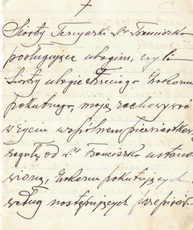 Siostry Tercyarki Św. Franciszka
posługujące ubogim, czyli
Siostry ubogie Trzeciego Zakonu
pokutnego, mają zachowywać
w życiu wspólnem pierwiastkową
regułę od Św. Franciszka ustano
wioną, Zakonu pokutujących
według następujących przepisów